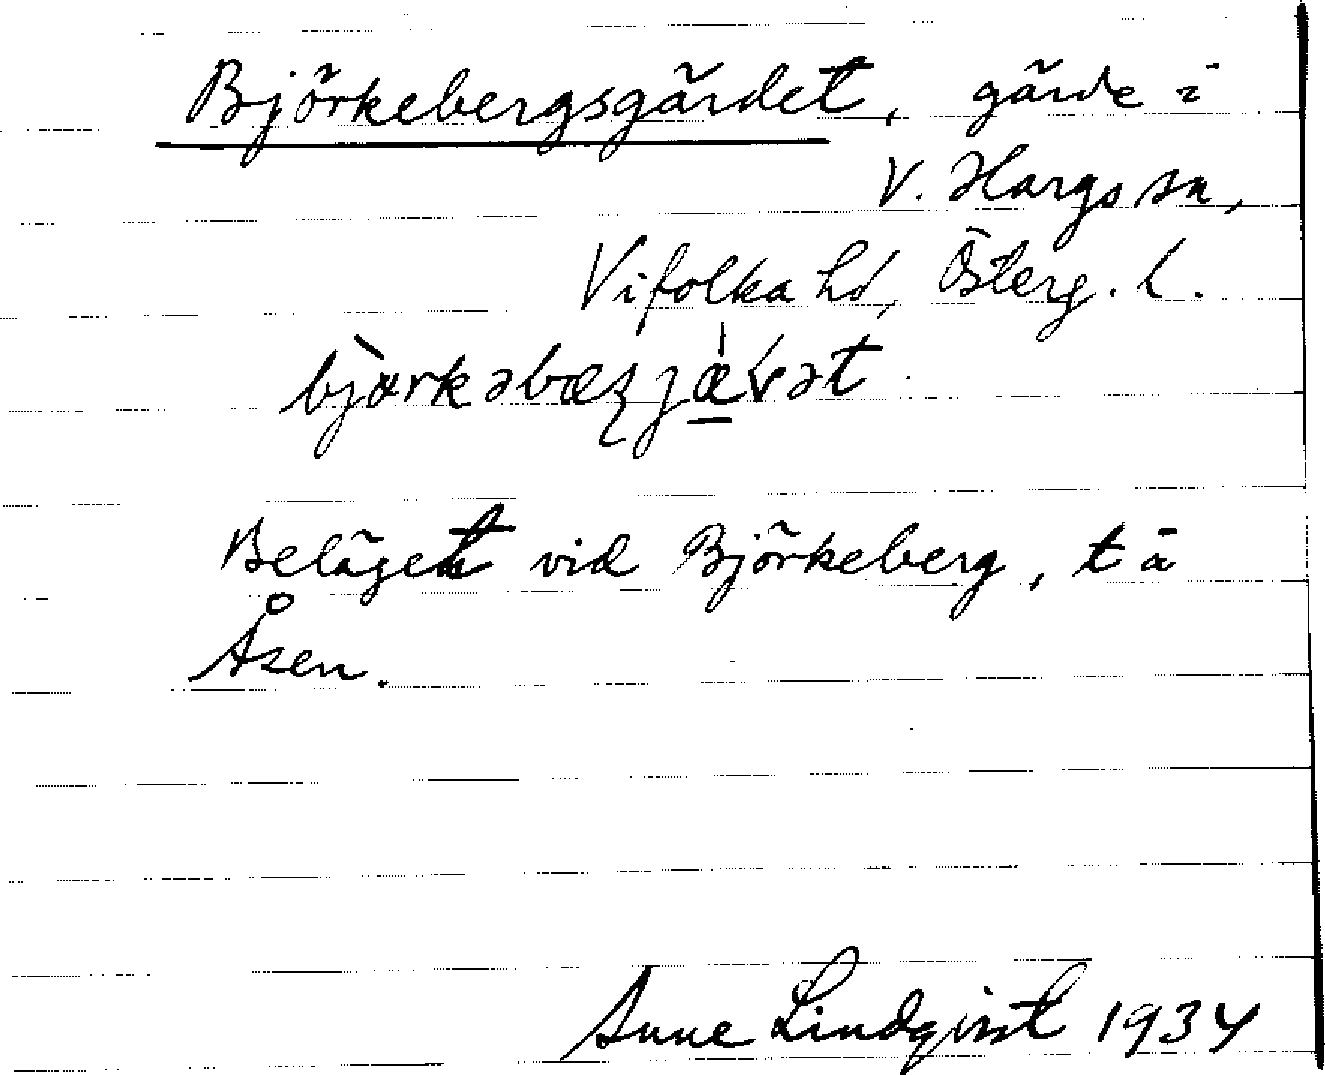 Björkebergsgärdet, gärde i
V. Hargs sn,
Vifolka hd, Österg. l.
Beläget vid Björkeberg, t ä
Åsen.
Sune Lindqvist 1934